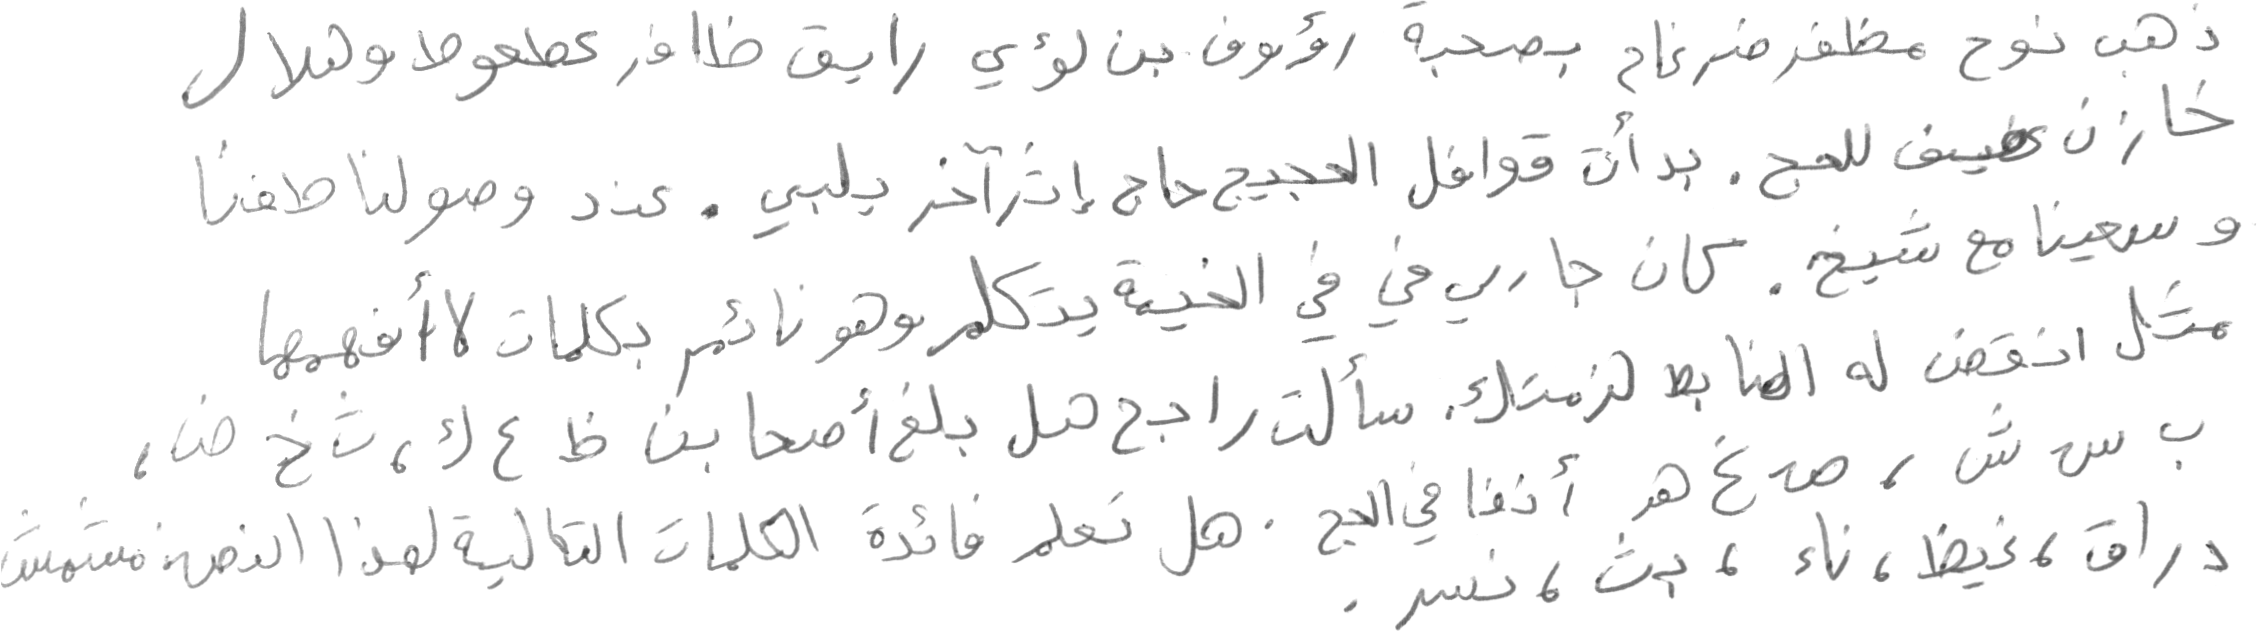 ذهب نوح مظفر ضرغام بصحبة رؤوف بن لؤي رايق ظافر عطعوط وهلال
خازن عفيف للحج . بدأت قوافل الحجيج حاج إثر آخر يلبي . عند وصولنا طفنا
و سعينا مع شيخ . كان جاري في في الخيمة يتكلم وهو نائم بكلمات لا أفهمها
مثل انقض له الضابط لزمتك . سألت راجح هل بلغ أصحابن ظ ع ك ، ث خ ض ،
ب س ش ، ص غ هـ أذفا في الحج . هل تعلم فائدة الكلمات التالية لهذا النص : مشمش
دراق ، غيظ ، ناء ، بث ، نسر .